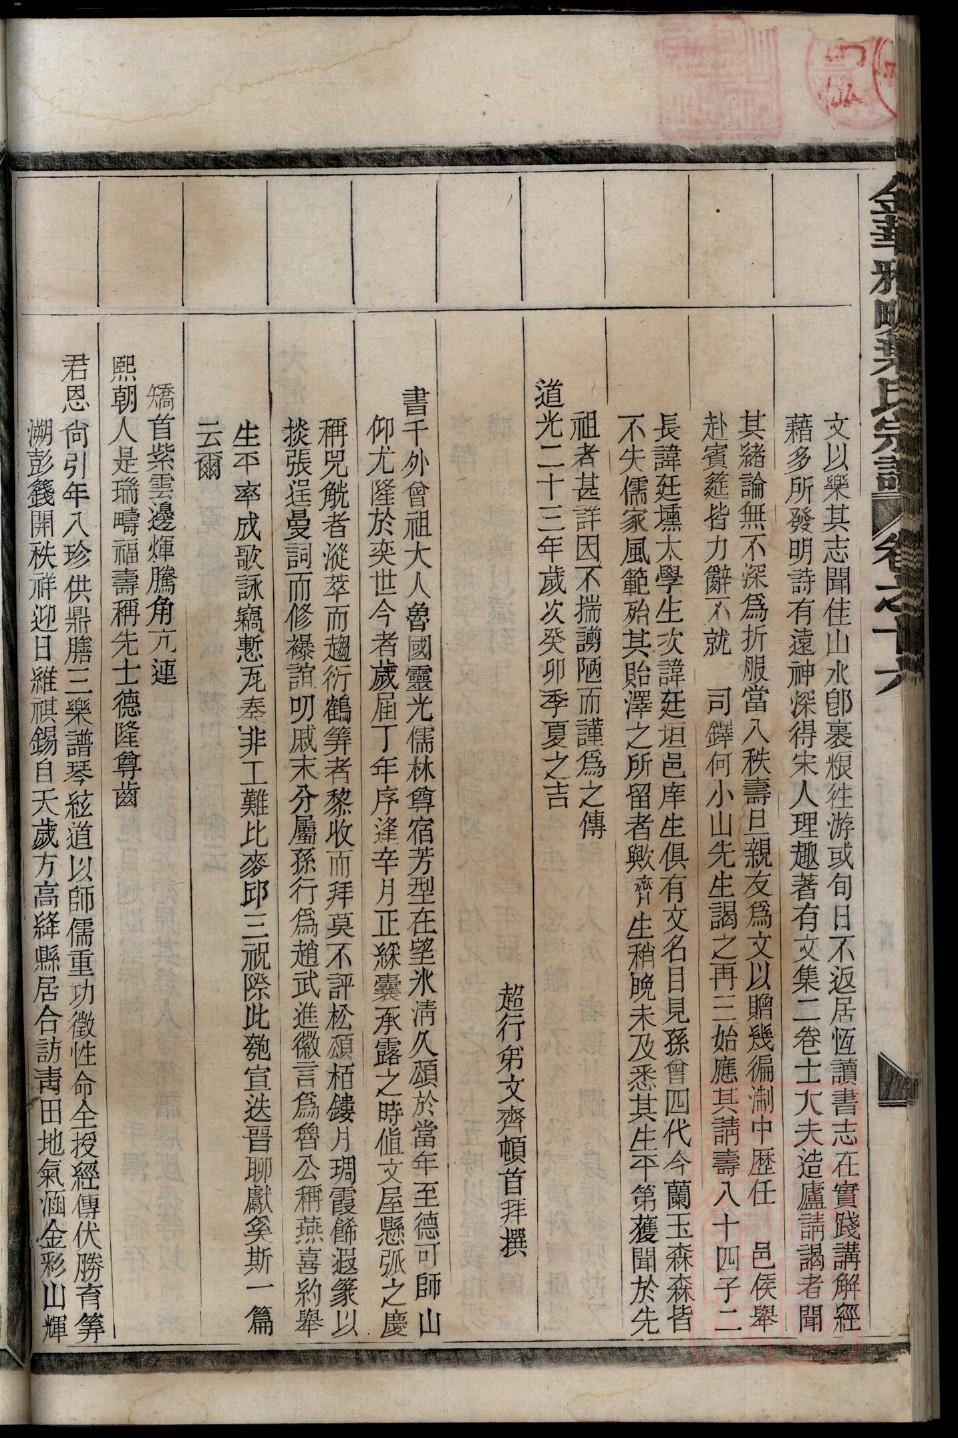 金華雅畈葉氏宗譜 卷之十六
文以樂其志聞佳山水卽裹粮徃游或旬日不返居恆讀書志在實踐講解經
藉多所發明詩有遠神深得宋人理趣著有文集二卷士大夫造廬請謁者聞
其緒論無不深爲折服當八秩壽旦親友爲文以贈幾徧淛中歴任 邑侯舉
赴賓筵皆力辭不就 司鐸何小山先生謁之再三始應其請壽八十四子二
長諱廷壎太學生次諱廷垣邑庠生俱有文名目見孫曾四代今蘭玉森森皆
不失儒家風範殆其貽澤之所留者歟齊生稍晚未及悉其生平第蒦聞於先
祖者甚詳因不揣謭陋而謹爲之傳
道光二十三年歲次癸卯季夏之吉
超行弟文齊頓首拜撰
書千外曾祖大人魯國靈光儒林尊宿芳型在望氷清久頌於當年至德可師山
仰尤隆於奕世今者歲屆丁年序逢辛月正綵囊承露之時値文屋懸弧之慶
稱兕觥者漎萃而趨衍鶴筭者黎收而拜莫不評松頌栢鏤月琱霞餙遐篆以
掞張逞曼詞而修襮誼叨戚末分屬孫行爲趙武進徽言爲魯公稱燕喜約舉
生平率成歌詠竊慙巵奏非工難比麥邱三祝際此匏宣迭晉聊獻奚斯一篇
云爾
矯首紫雲邊煇騰角亢連
熙朝人是瑞疇福壽稱先士德隆尊齒
君恩尙引年八珍供鼎膳三樂譜琴絃道以師儒重功徵性命全授經傳伏勝育筭
溯彭籛開秩祥迎日維祺錫自天歲方高絳縣居合訪靑田地氣涵金彩山輝